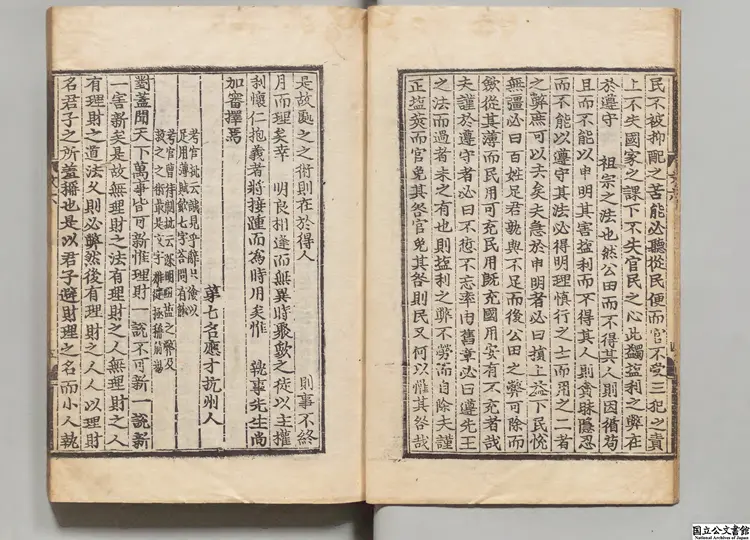 民不被抑配之苦能必聽從民便而官不受三犯之責
上不失國家之課下不失官民之心此獨益利之弊在
於遵守 祖宗之法也然公田而不得其人則因循苟
且而不能以申明其害益利而不得其人則貪昧隱忍
而不能以遵守其法必得明理慎行之士而用之二者
之弊庶可以去矣夫急於申明者必曰損上益下民悅
無疆必曰百姓足君孰與不足而後公田之弊可除而
斂從其薄而民用可充民用既充國用安有不充者哉
夫謹於遵守者必曰不愆不忘率由舊章必曰遵先王
之法而過者未之有也則益利之弊不勞而自除夫謹
正益莢而官免其咎官免其咎則民又何以惟其咎哉
是故區之之術則在於得人 則事不終
月而理矣幸 明良相逢而無異時聚斂之徒以主權
剥懷仁抱義者將捶踵而為時用矣惟 執事先生尚
加審擇焉
第七名應才杭州人
考官批云議見乎辭只後以
足用薄賦斂七字荅問有餘
對蓋聞天下萬事皆可新惟理財一說不可新一說新
一害新矣是故無理財之法有理財之人無理財之人
有理財之道法久則必弊然後有理財之人人以理財
名君子之所羞播也是以君子避財理之名而小人執
国立公文書館
National Archives of Japan